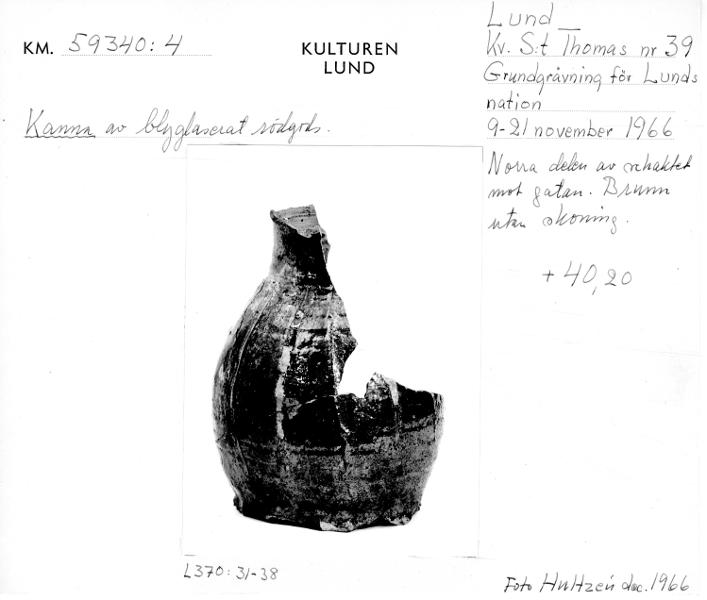 KM. 59340:4
KULTUREN
LUND
Lund
Kv. S:t Thomas nr 39
Grundgrävning för Lunds
nation
9-21 november 1966
Kanna av blyglaserat rödgods.
Norra delen av schaktet
mot gatan. Brunn
utan skoning.
+ 40,20
L370:31-38
Foto Hultzén dec. 1966